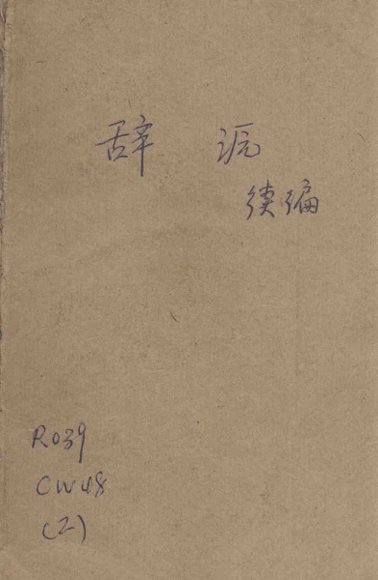 辞 源
续编
R039
CW48
(2)